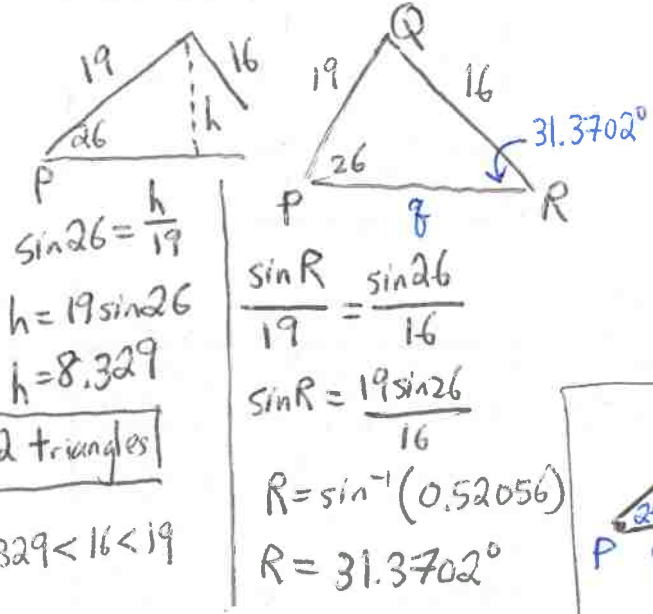 19
16
26
h
P
sin26 = h/19
h = 19sin26
h = 8.329
2 triangles
329 < 16 < 19
Q
19
16
31.3702°
26
P
q
R
sinR/19 = sin26/16
sinR = 19sin26/16
R = sin⁻¹(0.52056)
R = 31.3702°
P